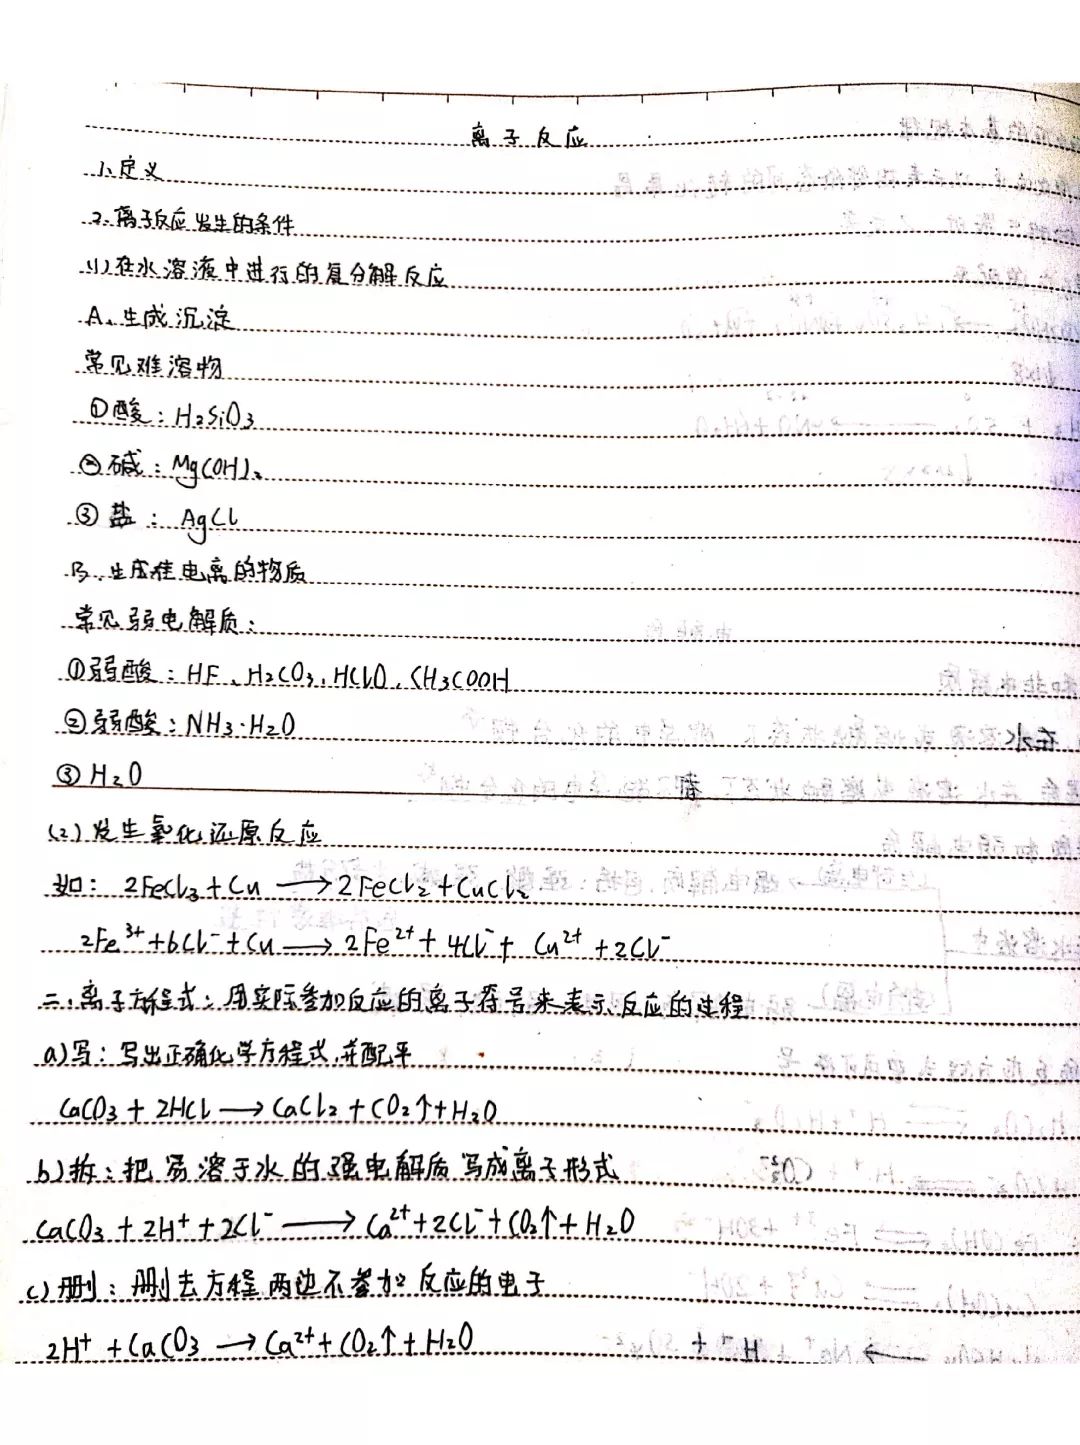 离子反应
1、定义
2.离子反应发生的条件
(1)在水溶液中进行的复分解反应
A、生成沉淀
常见难溶物
①酸：H₂SiO₃
②碱：Mg(OH)₂
③盐：AgCl
B、生成难电离的物质
常见弱电解质：
①弱酸：HF、H₂CO₃、HClO、CH₃COOH
②弱酸：NH₃·H₂O
③H₂O
(2)发生氧化还原反应
如：2FeCl₃+Cu⟶2FeCl₂+CuCl₂
2Fe³⁺+6Cl⁻+Cu⟶2Fe²⁺+4Cl⁻+Cu²⁺+2Cl⁻
二.离子方程式：用实际参加反应的离子符号来表示反应的过程
a)写：写出正确化学方程式，并配平
CaCO₃+2HCl⟶CaCl₂+CO₂↑+H₂O
b)拆：把易溶于水的强电解质写成离子形式
CaCO₃+2H⁺+2Cl⁻⟶Ca²⁺+2Cl⁻+CO₂↑+H₂O
c)删：删去方程两边不参加反应的电子
2H⁺+CaCO₃⟶Ca²⁺+CO₂↑+H₂O